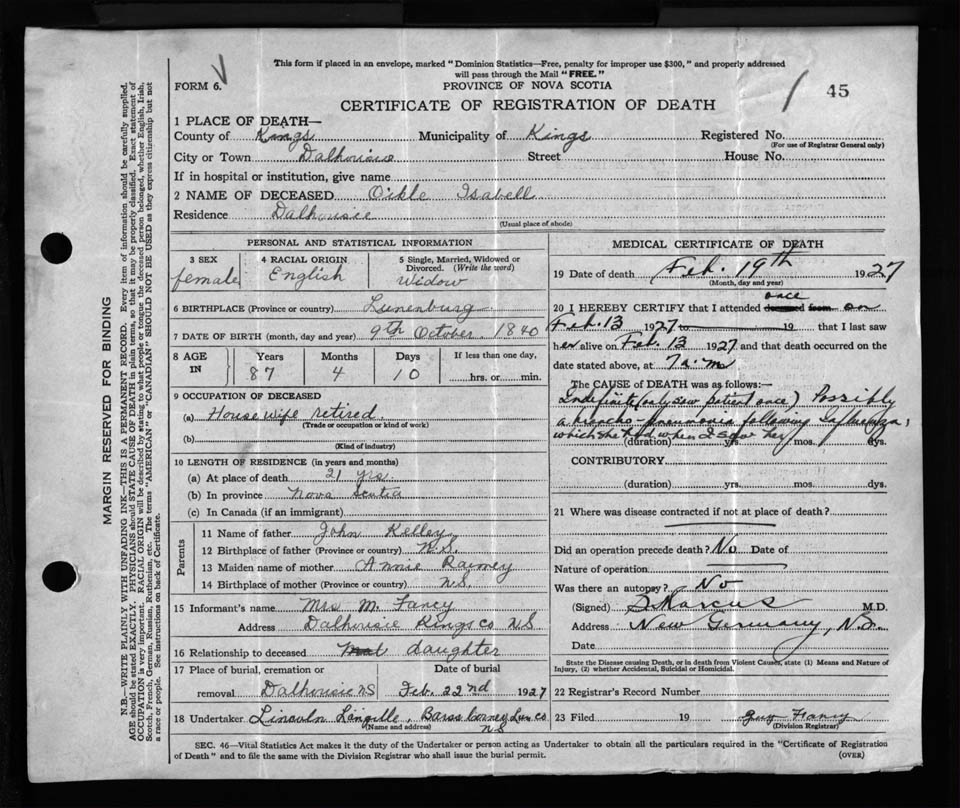 This form if placed in an envelope, marked "Dominion Statistics—Free, penalty for improper use $300," and properly addressed
will pass through the Mail "FREE."
FORM 6.
PROVINCE OF NOVA SCOTIA
45
CERTIFICATE OF REGISTRATION OF DEATH
1 PLACE OF DEATH—
County of Kings Municipality of Kings Registered No.
(For use of Registrar General only)
City or Town Dalhousie Street House No.
If in hospital or institution, give name
2 NAME OF DECEASED Oikle Isabell
Residence Dalhousie
(Usual place of abode)
PERSONAL AND STATISTICAL INFORMATION
3 SEX 4 RACIAL ORIGIN 5 Single, Married, Widowed or
Divorced. (Write the word)
female English Widow
6 BIRTHPLACE (Province or country) Lunenburg
7 DATE OF BIRTH (month, day and year) 9th October. 1840
8 AGE IN Years Months Days If less than one day,
87 4 10 hrs. or min.
9 OCCUPATION OF DECEASED
(a) House wife retired.
(Trade or occupation or kind of work)
(b)
(Kind of industry)
10 LENGTH OF RESIDENCE (in years and months)
(a) At place of death 21 yrs
(b) In province Nova Scotia
(c) In Canada (if an immigrant)
Parents
11 Name of father John Kelley
12 Birthplace of father (Province or country) N.S.
13 Maiden name of mother Annie Ramey
14 Birthplace of mother (Province or country) N.S
15 Informant's name Mrs M. Fancy
Address Dalhousie Kings Co N.S
16 Relationship to deceased Daughter
17 Place of burial, cremation or Date of burial
removal Dalhousie NS Feb. 22nd 1927
18 Undertaker Lincoln Langille, Barss Corner, Lun Co
(Name and address) NS
MEDICAL CERTIFICATE OF DEATH
19 Date of death Feb. 19th 1927
(Month, day and year)
once
20 I HEREBY CERTIFY that I attended deceased from on
Feb. 13 1927 to 19 that I last saw
her alive on Feb. 13 1927 and that death occurred on the
date stated above, at 7 a.m
The CAUSE of DEATH was as follows:—
Indefinite (only saw patient once) Possibly
a broncho pneumonia following Influenza,
which she had when I saw her
(duration) yrs. mos. dys.
CONTRIBUTORY
(duration) yrs. mos. dys.
21 Where was disease contracted if not at place of death?
Did an operation precede death? No Date of
Nature of operation
Was there an autopsy? No
(Signed) S Marcus M.D.
Address New Germany, N.S.
Date
State the Disease causing Death, or in death from Violent Causes, state (1) Means and Nature of
Injury, (2) whether Accidental, Suicidal or Homicidal.
22 Registrar's Record Number
23 Filed 19 Guy Fancy
(Division Registrar)
SEC. 46—Vital Statistics Act makes it the duty of the Undertaker or person acting as Undertaker to obtain all the particulars required in the "Certificate of Registration
of Death" and to file the same with the Division Registrar who shall issue the burial permit.
(OVER)
MARGIN RESERVED FOR BINDING
N.B.—WRITE PLAINLY WITH UNFADING INK—THIS IS A PERMANENT RECORD. Every item of information should be carefully supplied.
AGE should be stated EXACTLY. PHYSICIANS should STATE CAUSE OF DEATH in plain terms, so that it may be properly classified. Exact statement of
OCCUPATION is very important. RACIAL ORIGIN will be described by stating to what people or tongue the deceased person belonged, whether English, Irish,
Scotch, French, German, Russian, Ruthenian, etc. The terms "AMERICAN" or "CANADIAN" SHOULD NOT BE USED as they express citizenship but not
a race or people. See instructions on back of Certificate.